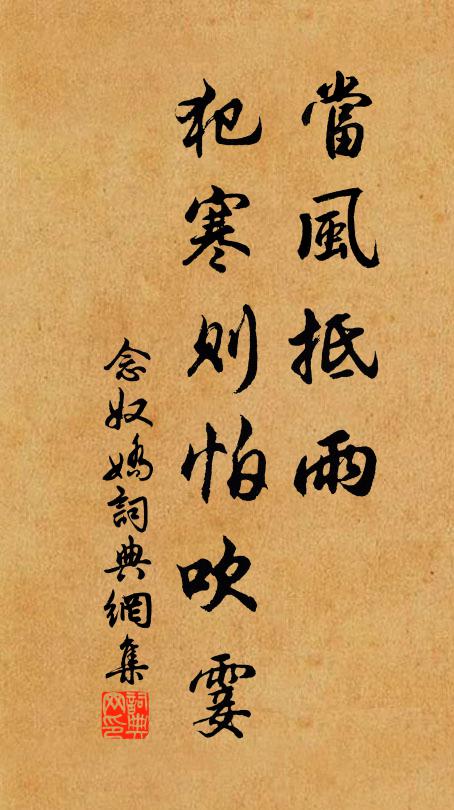 當風抵雨
犯寒則怕吹霎
念奴嬌詞典網集
詞典
网印